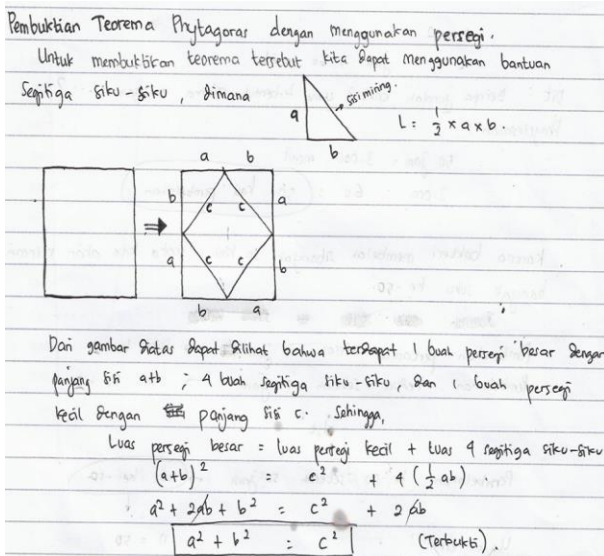 Pembuktian Teorema Phytagoras dengan menggunakan persegi.
Untuk membuktikan teorema tersebut kita dapat menggunakan bantuan
Segitiga siku-siku, dimana
sisi miring.
a
b
L = 1/2 × a × b.
a b
b c c a
a c c b
b a
Dari gambar diatas dapat dilihat bahwa terdapat 1 buah persegi besar dengan
panjang sisi a+b ; 4 buah segitiga siku-siku, dan 1 buah persegi
kecil dengan panjang sisi c. Sehingga,
Luas persegi besar = luas persegi kecil + luas 4 segitiga siku-siku
(a+b)² = c² + 4 (1/2 ab).
a² + 2ab + b² = c² + 2 ab
a² + b² = c² (Terbukti).